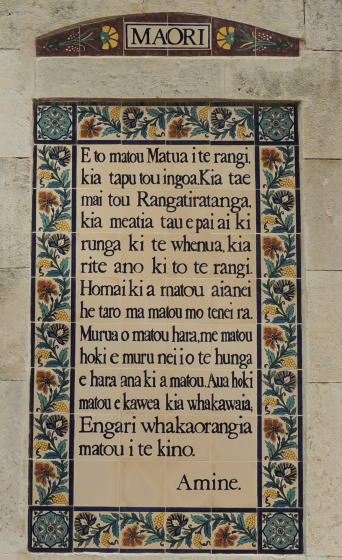 MAORI
E to matou Matua i te rangi,
kia tapu tou ingoa. Kia tae
mai tou Rangatiratanga,
kia meatia tau e pai ai ki
runga ki te whenua, kia
rite ano ki to te rangi.
Homai ki a matou aianei
he taro ma matou mo tenei ra.
Murua o matou hara, me matou
hoki e muru nei i o te hunga
e hara ana ki a matou. Aua hoki
matou e kawea kia whakawaia,
Engari whakaorangia
matou i te kino.
Amine.